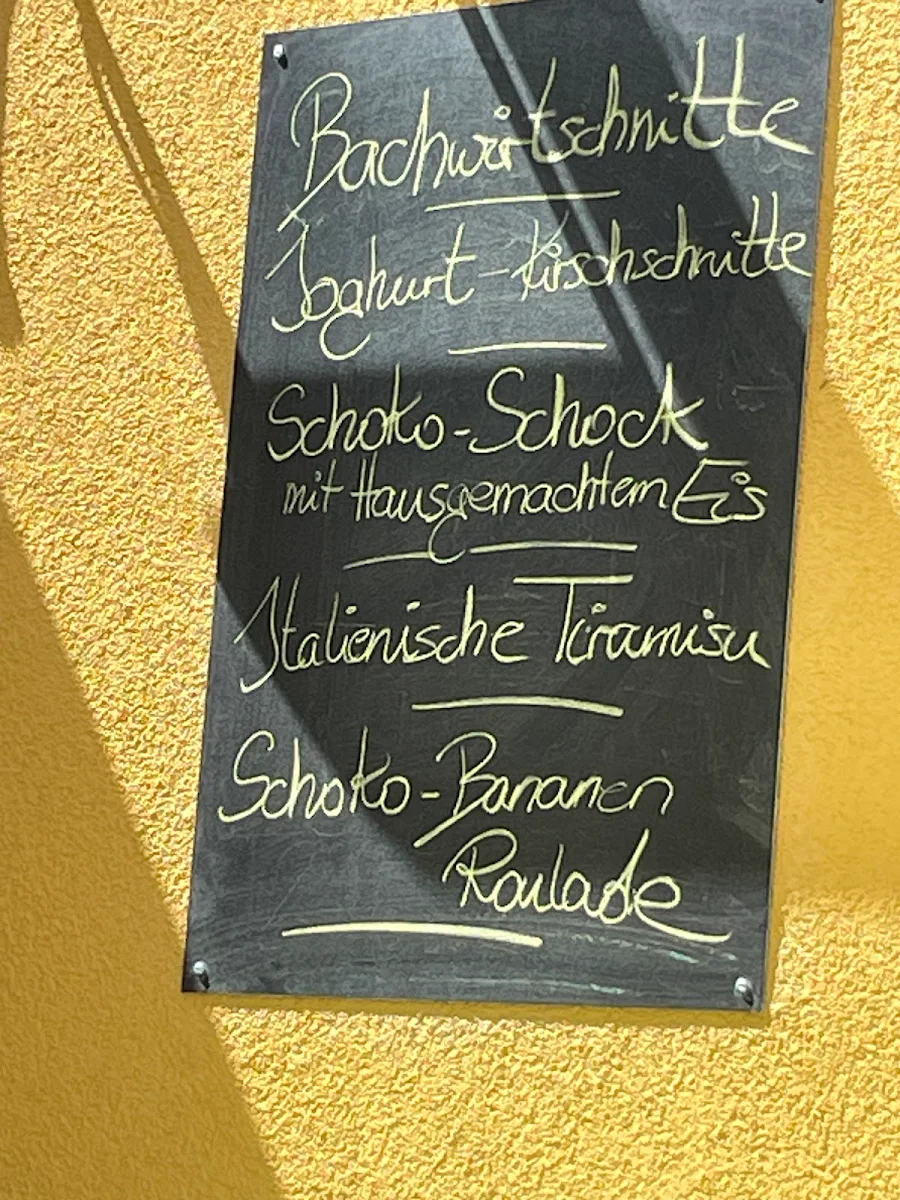 Bachwirtschnitte
Joghurt-Kirschschnitte
Schoko-Schock
mit Hausgemachtem Eis
Italienische Tiramisu
Schoko-Bananen
Roulade